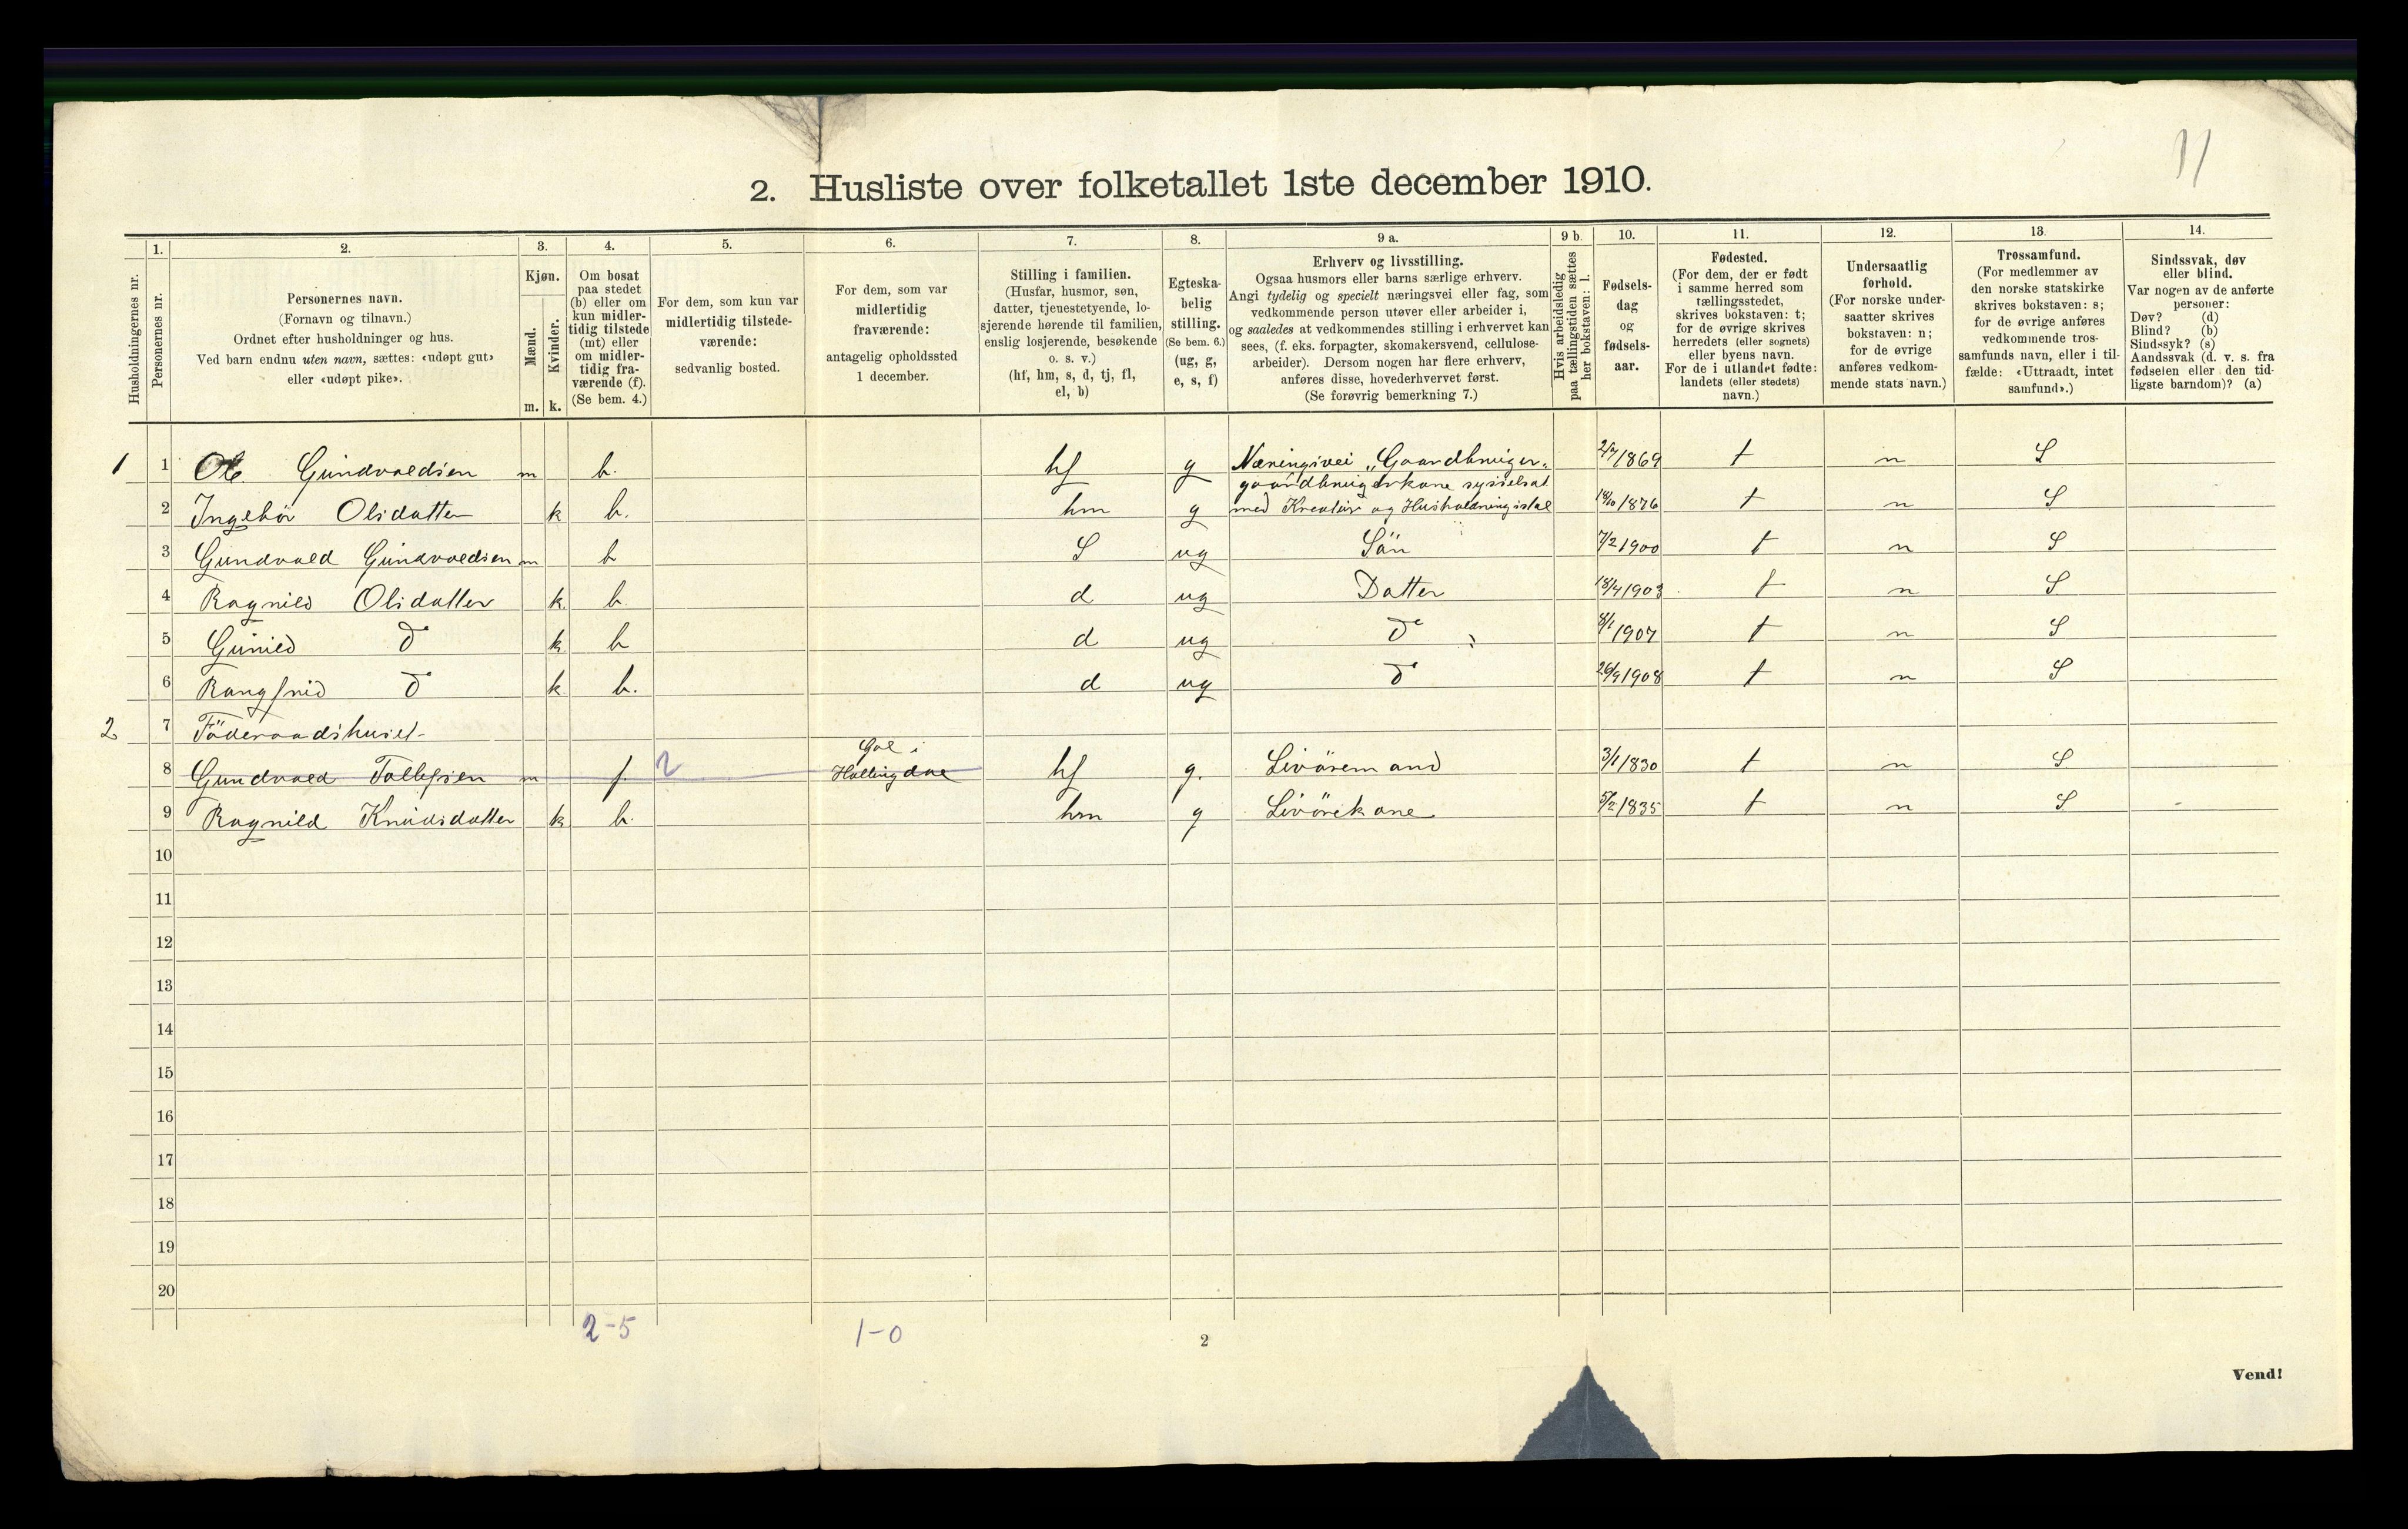 11
2. Husliste over folketallet 1ste december 1910.
Husholdningernes nr.
1.
Personernes nr.
2.
Personernes navn.
(Fornavn og tilnavn.)
Ordnet efter husholdninger og hus.
Ved barn endnu uten navn, sættes: «udøpt gut»
eller «udøpt pike».
3.
Kjøn.
Mænd.
Kvinder.
m. k.
4.
Om bosat
paa stedet
(b) eller om
kun midler-
tidig tilstede
(mt) eller
om midler-
tidig fra-
værende (f).
(Se bem. 4.)
5.
For dem, som kun var
midlertidig tilstede-
værende:
sedvanlig bosted.
6.
For dem, som var
midlertidig
fraværende:
antagelig opholdssted
1 december.
7.
Stilling i familien.
(Husfar, husmor, søn,
datter, tjenestetyende, lo-
sjerende hørende til familien,
enslig losjerende, besøkende
o. s. v.)
(hf, hm, s, d, tj, fl,
el, b)
8.
Egteska-
belig
stilling.
(Se bem. 6.)
(ug, g,
e, s, f)
9 a.
Erhverv og livsstilling.
Ogsaa husmors eller barns særlige erhverv.
Angi tydelig og specielt næringsvei eller fag, som
vedkommende person utøver eller arbeider i,
og saaledes at vedkommendes stilling i erhvervet kan
sees, (f. eks. forpagter, skomakersvend, cellulose-
arbeider). Dersom nogen har flere erhverv,
anføres disse, hovederhvervet først.
(Se forøvrig bemerkning 7.)
9 b.
Hvis arbeidsledig
paa tællingstiden sættes
her bokstaven: l.
10.
Fødsels-
dag
og
fødsels-
aar.
11.
Fødested.
(For dem, der er født
i samme herred som
tællingsstedet,
skrives bokstaven: t;
for de øvrige skrives
herredets (eller sognets)
eller byens navn.
For de i utlandet fødte:
landets (eller stedets)
navn.)
12.
Undersaatlig
forhold.
(For norske under-
saatter skrives
bokstaven: n;
for de øvrige
anføres vedkom-
mende stats navn.)
13.
Trossamfund.
(For medlemmer av
den norske statskirke
skrives bokstaven: s;
for de øvrige anføres
vedkommende tros-
samfunds navn, eller i til-
fælde: «Uttraadt, intet
samfund».)
14.
Sindssvak, døv
eller blind.
Var nogen av de anførte
personer:
Døv? (d)
Blind? (b)
Sindssyk? (s)
Aandssvak (d. v. s. fra
fødselen eller den tid-
ligste barndom)? (a)
1 1 Ole Gundvaldsen m b. hf g Næringsvei „Gaardbruger„ 1869 t n S
gaardbrugerkone sysselsat
2 Ingebör Olsdatter k b. hm g med Kreatur og Husholdningsstel 18/10 1876 t n S
3 Gundvald Gundvaldsen m b S ug Sön 7/2 1900 t n S
4 Ragnild Olsdatter k. b d ug Datter 18/4 1903 t n S
5 Gunild do k b d ug do 8/1 1907 t n S
6 Rangfnid do k b. d ug do 26/9 1908 t n S
2 7 Föderaadshuset
Gol i
8 Gundvald Tollefsen m f. 2 Hallingdal hf g. Livöremand 3/1 1830 t n S
9 Ragnild Knudsdatter k b. hm g Livörekone 5/2 1835 t n S -
10
11
12
13
14
15
16
17
18
19
20
2-5 1-0
2
Vend!